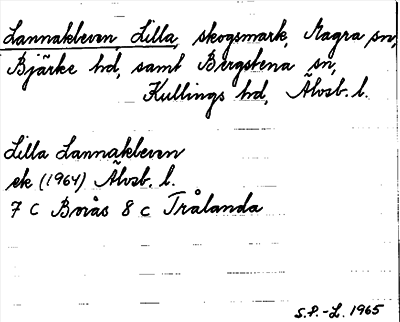 Lannakleven, Lilla, skogsmark, Magra sn,
Bjärke hd, samt Bergstena sn,
Kullings hd, Älvsb. l.
Lilla Lannakleven
ek (1964) Älvsb. l.
7 C Borås 8 c Trålanda
S.P.-L. 1965